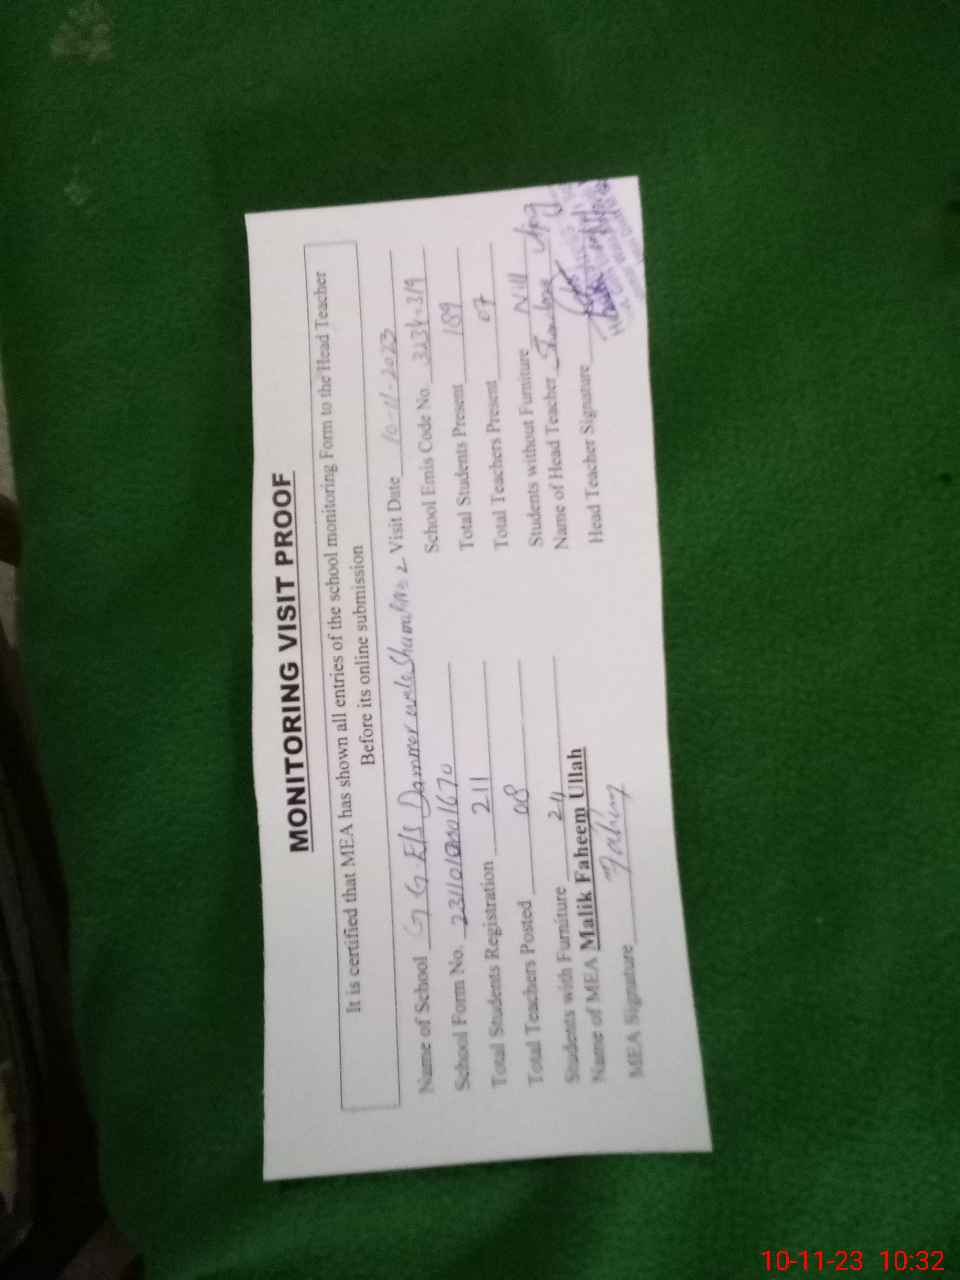 MONITORING VISIT PROOF
It is certified that MEA has shown all entries of the school monitoring Form to the Head Teacher
Before its online submission
Name of School G G E/S Dammer wala Shumali No 2 Visit Date 10-11-2023
School Form No. School Emis Code No.
Total Students Registration 211 Total Students Present 189
Total Teachers Posted 08 Total Teachers Present 07
Students with Furniture Students without Furniture Nill
Name of MEA Malik Faheem Ullah Name of Head Teacher
MEA Signature Fahim Head Teacher Signature
10-11-23 10:32